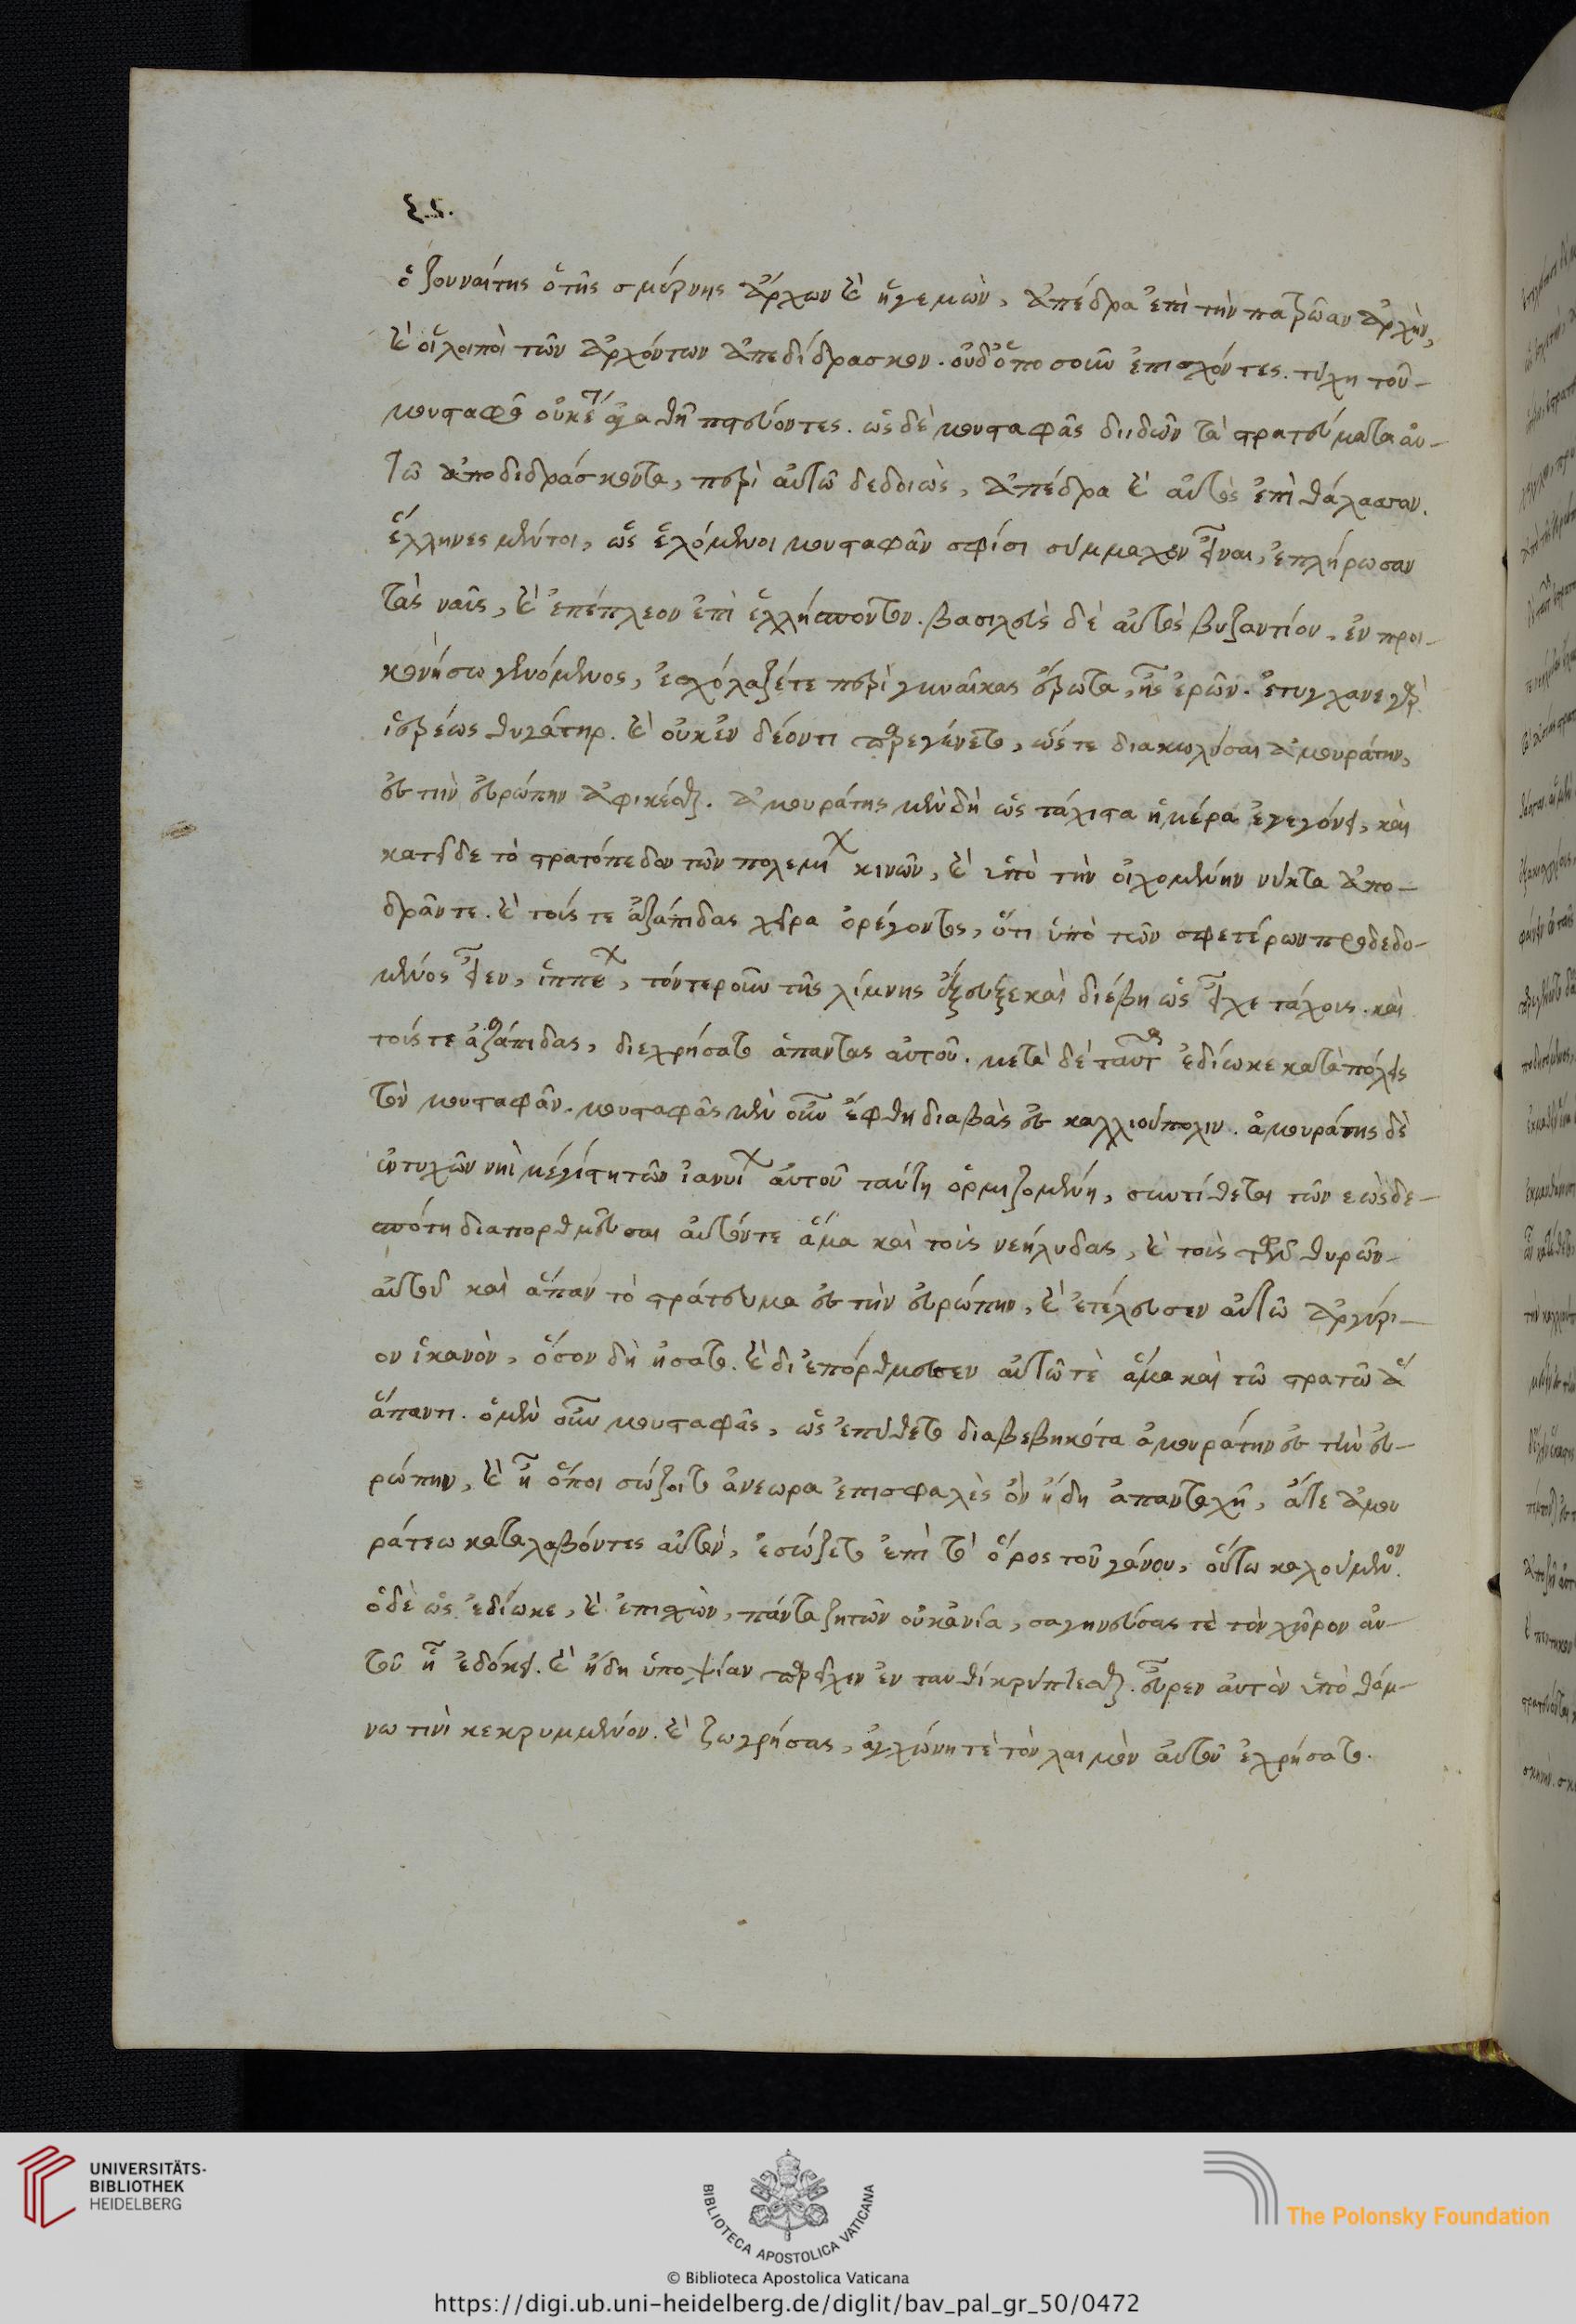 ξϛ.
ὁ ζουναίτης ὁ τῆς σμύρνης ἄρχων καὶ ἡγεμὼν, ἀπέδρα ἐπὶ τὴν πατρῴαν ἀρχὴν,
καὶ οἱ λοιποὶ τῶν ἀρχόντων ἀπεδίδρασκον. οὐδ' ὁποσοιοῦν ἐπισχόντες. τύχῃ τοῦ
μουσταφᾶ οὐκέτι ἀγαθῇ πιστεύοντες. ὡς δὲ μουσταφᾶς διιδὼν τὰ στρατεύματα αὐ-
τῶ ἀποδιδράσκοντα, περὶ αὐτῶ δεδοιὼς, ἀπέδρα καὶ αὐτὸς ἐπὶ θάλασσαν.
ἕλληνες μέντοι, ὡς ἑλόμενοι μουσταφᾶν σφίσι σύμμαχον εἶναι, ἐπλήρωσαν
τὰς ναῦς, καὶ ἐπέπλεον ἐπὶ ἑλλήσποντον. βασιλεὺς δὲ αὐτὸς βυζαντίου, ἐν προι-
κονήσω γενόμενος, ἐσχόλαζέ τε περὶ γυναῖκας ἔρωτα, ἧς ἐρῶν. ἐτύγχανε γὰρ
ἱερέως θυγάτηρ. καὶ οὐκ ἐν δέοντι παρεγένετο, ὥστε διακωλῦσαι ἀμουράτην,
ἐς τὴν εὐρώπην ἀφικέσθαι. ἀμουράτης μὲν δὴ ὡς τάχιστα ἡμέρα ἐγεγόνει, καὶ
κατεῖδε τὸ στρατόπεδον τῶν πολεμίχ κινῶν, καὶ ὑπὸ τὴν οἰχομένην νύκτα ἀπο-
δράντε. καὶ τούς τε ἀζάπιδας χεῖρα ὀρέγοντας, ὅτι ὑπὸ τῶν σφετέρων προδεδο-
μένος εἶεν, ἱππεχ, τόν τε ῥοῦν τῆς λίμνης ἔζευξε καὶ διέβη ὡς εἶχε τάχους. καὶ
τούς τε ἀζάπιδας, διεχρήσατο ἅπαντας αὐτοῦ. μετὰ δὲ ταῦτα ἐδίωκε κατὰ πόλεις
τὸν μουσταφᾶν. μουσταφᾶς μὲν οὖν ἔφθη διαβὰς ἐς καλλιούπολιν. ἀμουράτης δὲ
ἐντυχὼν νηὶ μεγίστη τῶν ἰανυίχ αὐτοῦ ταύτη ὁρμιζομένη, συντίθεται τῶν εὼς δε-
σπότη διαπορθμεῦσαι αὐτόν τε ἅμα καὶ τοὺς νεήλυδας, καὶ τοὺς τῶν θυρῶν
αὐτοῦ καὶ ἅπαν τὸ στράτευμα ἐς τὴν εὐρώπην, καὶ ἐτέλευσεν αὐτῶ ἀργύρι-
ον ἱκανὸν, ὅσον δὴ ᾔσατο. καὶ διεπόρθμευσεν αὐτῶ τὲ ἅμα καὶ τῶ στρατῶ ἅ
ἅπαντι. ὁ μὲν οὖν μουσταφᾶς, ὡς ἐπύθετο διαβεβηκότα ἀμουράτην ἐς τὴν εὐ-
ρώπην, καὶ ᾗ ὅποι σώζοιτο ἀνεώρα ἐπισφαλὲς ὂν ἤδη ἁπανταχῇ, ἅτε ἀμου
ράτεω καταλαβόντες αὐτὸν, ἐσώζετο ἐπὶ τὸ ὄρος τοῦ γάνου, οὕτω καλούμενον.
ὁ δὲ ὡς ἐδίωκε, καὶ ἐπισχὼν, πάντα ζητῶν οὐκ ἀνία, σαγηνεύσας τὲ τὸν χῶρον αὐ-
τοῦ ᾗ ἐδόκει. καὶ ἤδη ὑποψίαν παρέχειν ἐν ταυθί κρύπτεσθαι. εὗρεν αὐτὸν ὑπὸ θάμ-
νω τινὶ κεκρυμμένον. καὶ ζωγρήσας, ἀγχώνη τὲ τὸν λαιμὸν αὐτοῦ ἐχρήσατο.
UNIVERSITÄTS-
BIBLIOTHEK
HEIDELBERG
BIBLIOTECA APOSTOLICA VATICANA
The Polonsky Foundation
© Biblioteca Apostolica Vaticana
https://digi.ub.uni-heidelberg.de/diglit/bav_pal_gr_50/0472